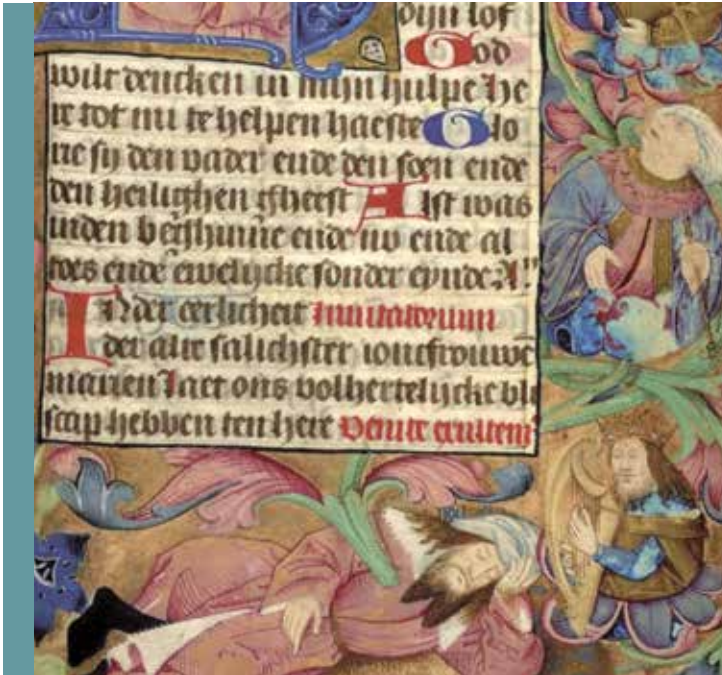 dijn lof
God
wilt dencken in mijn hulpe he
re tot mi te helpen haeste Glo
rie sij den vader ende den soen ende
den heilighen gheest Alst was
inden beghīne ende nv ende al
toes ende ewelijcke sonder eynde A
INder eerlicheit Inuitatorium
der alre salichster ioncfrouwē
marien laet ons volhertelijcke bli
scap hebben ten here Venite exultem